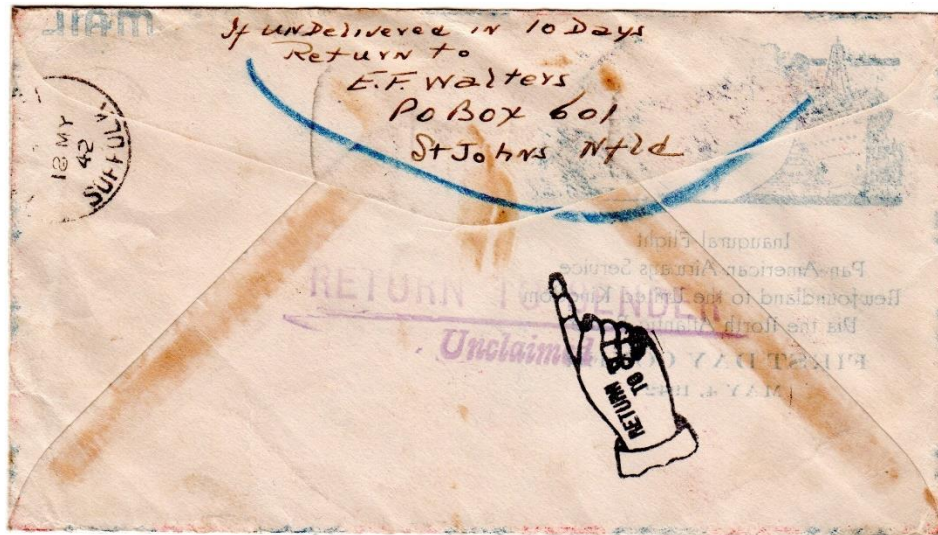 MAIL
If UNDelivered in 10 Days
Return to
E.F. Walters
PO Box 601
St Johns Nfld
18 MY
42
Inaugural Flight
Pan-American Airways Service
Newfoundland to the United Kingdom
Via the North Atlantic
FIRST DAY COVER
MAY 4, 1942
RETURN TO SENDER
Unclaimed
RETURN
TO